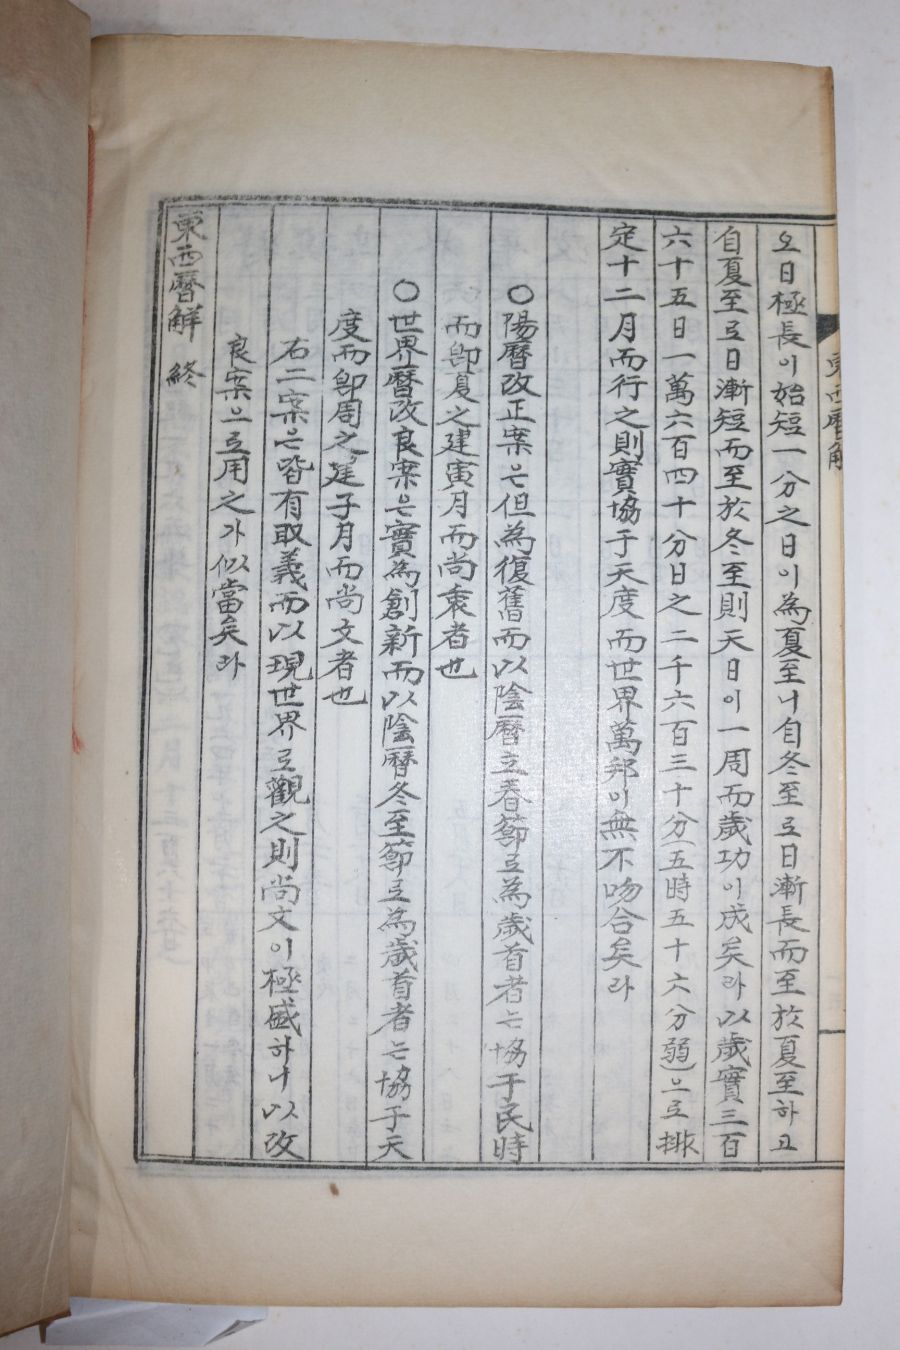 오日極長이始短一分之日이為夏至니自冬至로日漸長而至於夏至하고
自夏至로日漸短而至於冬至則天日이一周而歲功이成矣라以歲實三百
六十五日一萬六百四十分日之二千六百三十分(五時五十六分弱)으로排
定十二月而行之則實協于天度而世界萬邦이無不吻合矣라
○陽曆改正案은但為復舊而以陰曆立春節로為歲首者는協于民時
而卽夏之建寅月而尚衷者也
○世界曆改良案은實為創新而以陰曆冬至節로為歲首者는協于天
度而卽周之建子月而尚文者也
右二案은皆有取義而以現世界로觀之則尚文이極盛하니以改
良案으로用之가似當矣라
東西曆解 終
東西曆解